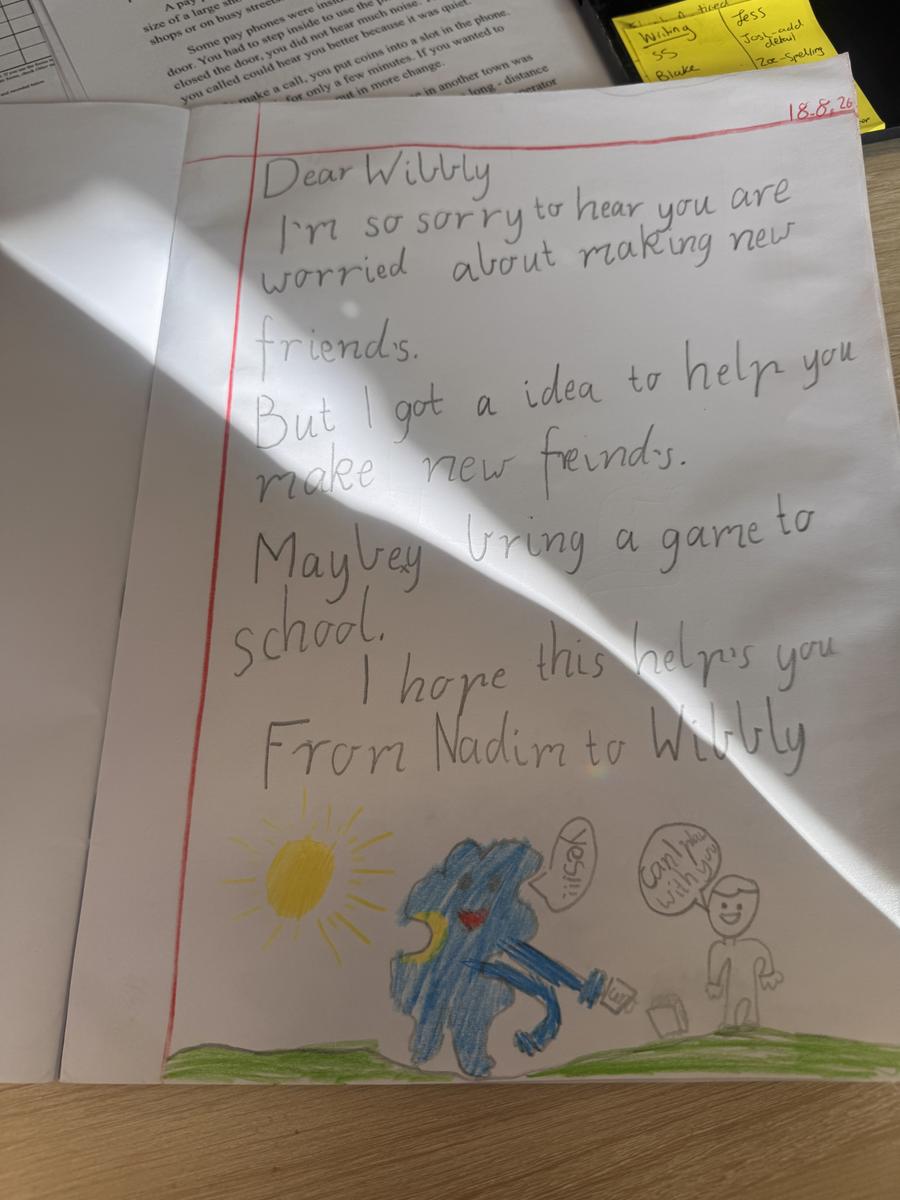 A pay
size of a large
shops or on busy streets
Some pay phones were insi
door. You had to step inside to use the
closed the door, you did not hear much noise.
you called could hear you better because it was quiet.
make a call, you put coins into a slot in the phone.
for only a few minutes. If you wanted to
put in more change.
in another town was
long - distance
operator
Writing
SS
Blake
Jess
Josh-add
detail
Zoe-Spelling
18.8.26
Dear Wibbly
I'm so sorry to hear you are
worried about making new
friends.
But I got a idea to help you
make new freinds.
Maybey bring a game to
school.
I hope this helps you
From Nadim to Wibbly
Yes!!!
Can I play
with you